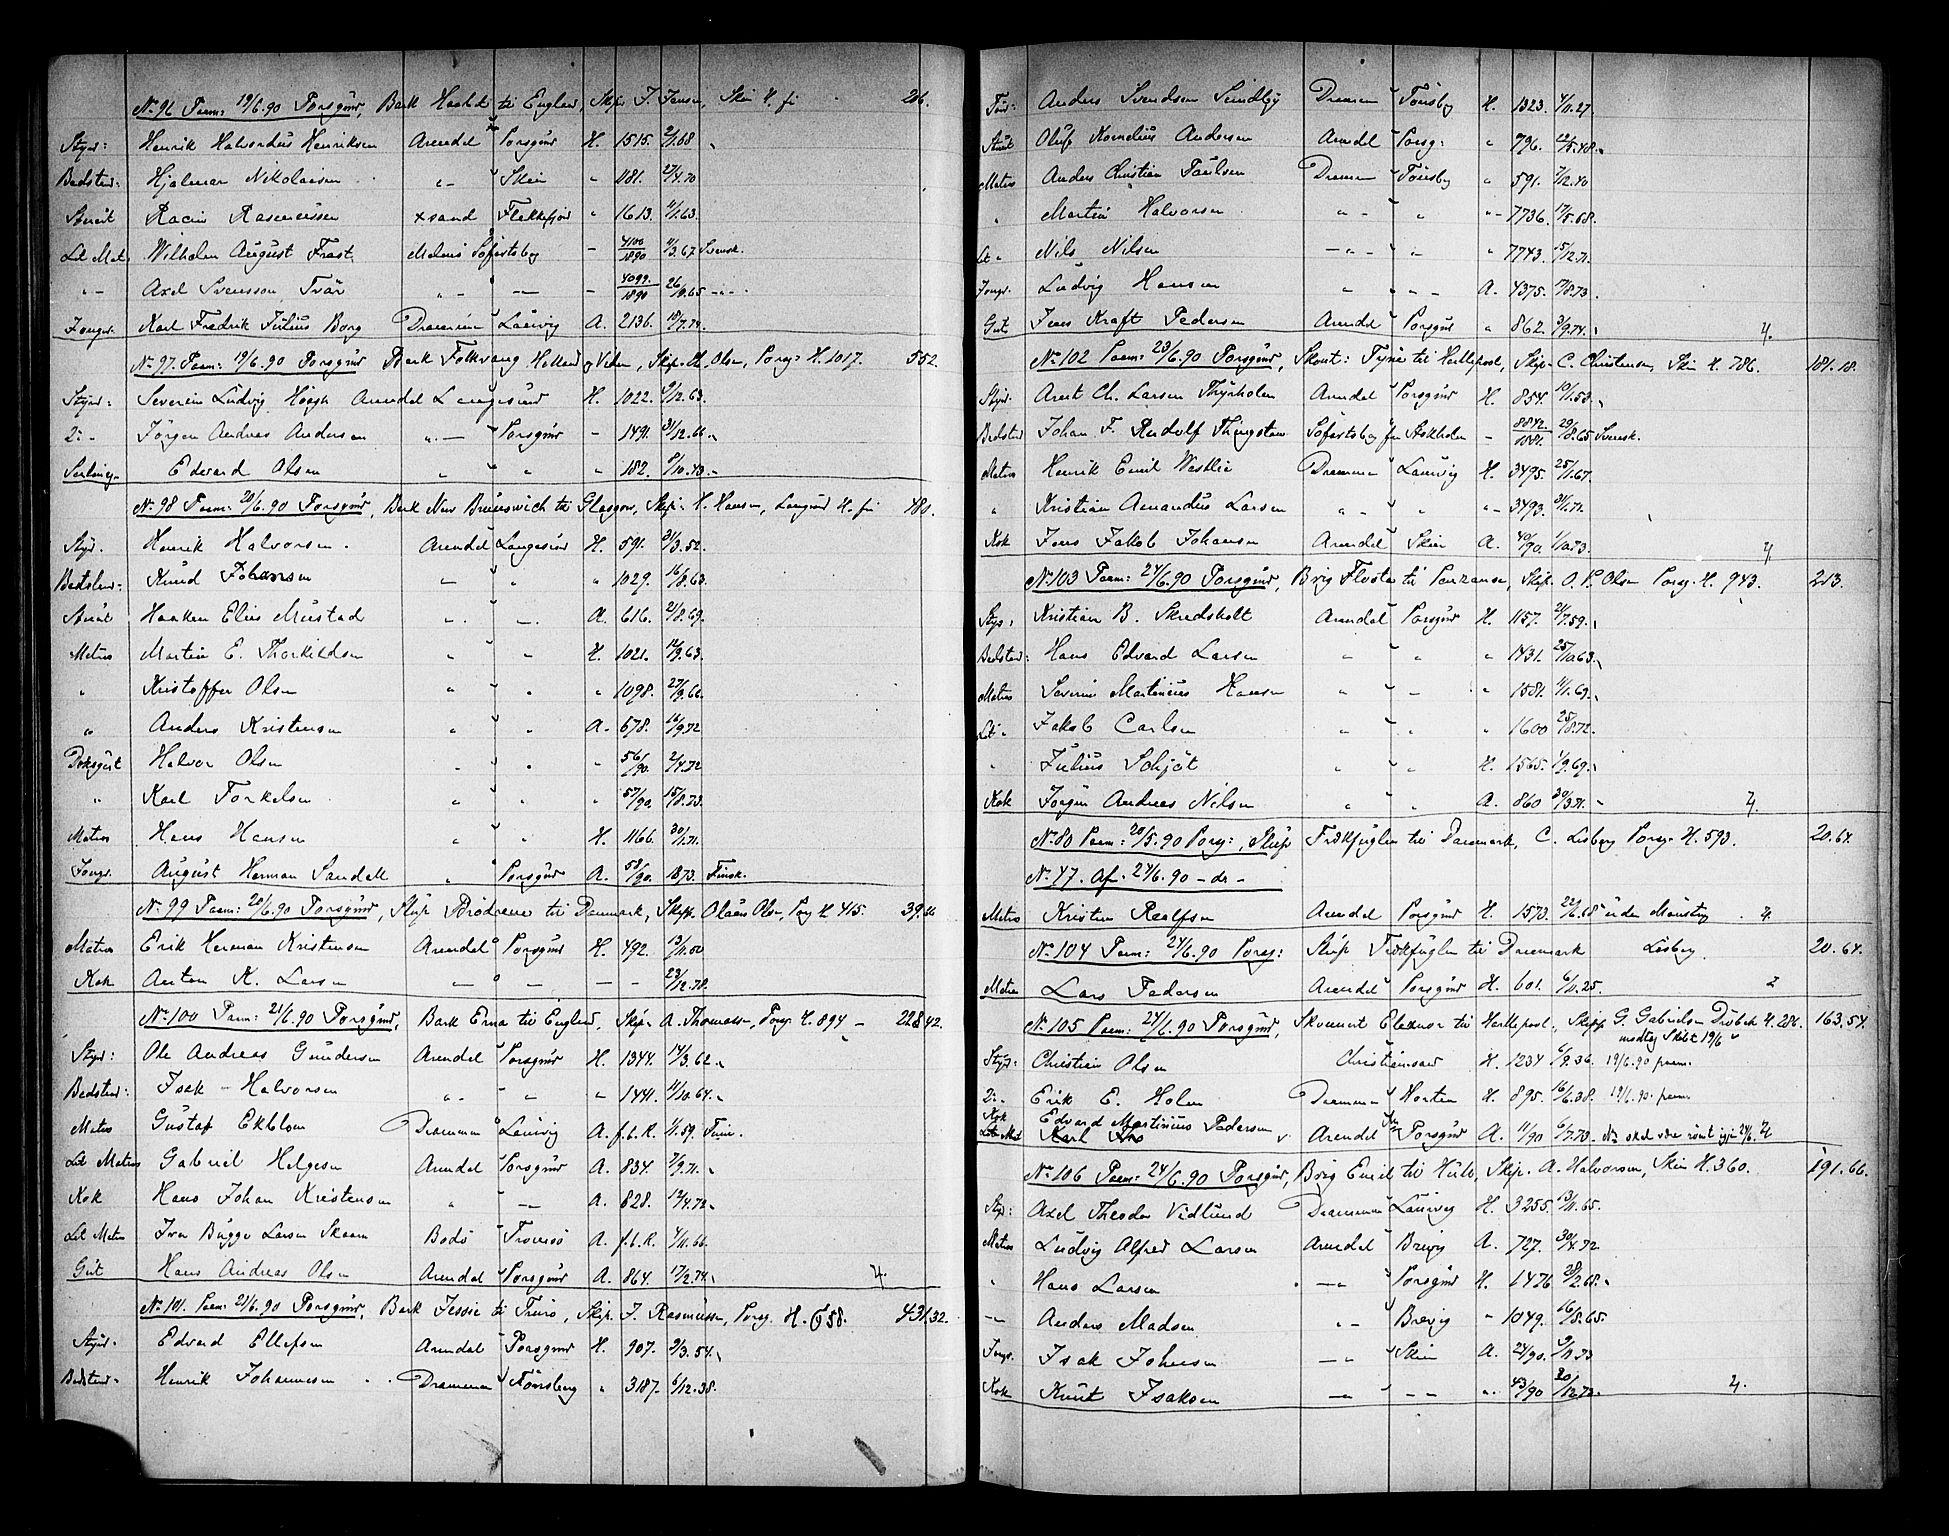 No 96 Paam: 19/6.90 Porsgrund, Bark Harald til England, Skip. J. Jensen, Skien H. fri 286.
Styrd: Henrik Halvordus Henriksen Arendal Porsgrund H. 1515. 2/1.68
Bedstmd: Hjalmar Nikolaisen " - " Skien " 1181. 27/4.70
Stuert Rasmussen Xsand Flekkefjord " 1613. 4/1.63.
Let Mat. Wilhelm August Frost Malmö Söfartsbog - 4100/1890 4/3.67 Svensk.
" - Axel Svensson Tvär " - - 4099/1890 26/10.65 - " -
Jungm. Karl Fredrik Julius Borg Drammen Laurvig A. 2136. 18/7.74.
No 97. Paam: 19/6.90 Porsgrund Bark Folkvang Skip. Olsen, Porsg: H. 1017. 552.
Styrd: Severin Ludvig Höegh Arendal Langesund H. 1022. 9/12.63
2: " Jörgen Andreas Andersen " - Porsgrund - 1491. 31/12.66.
Edvard Olsen " " " 182. 9/10.43.
No 98 Paam: 20/6.90 Porsgrund, Bark New Brunswich til Glasgow, Skip: H. Hansen, Langesund H. fri 480.
Styrd. Henrik Halvorsen. Arendal Langesund H. 591. 31/3.52.
Bedstmd: Knud Johansen - " " 1029. 16/8.63
Stuert Haaken Elius Mustad " " A. 616. 2/8.69.
Matros Martin E. Thorkildsen " " H. 1021. 12/9.63
" Kristoffer Olsen " " " 1098. 27/9.66
" Anders Kristensen " " A. 678. 16/9.72
Dæksgut Halvor Olsen " " " 56/90. 2/4.72
" Karl Torkelsen " " " 57/90. 15/8.73.
Matros Hans Hansen " " H. 1166. 30/1.71.
Jungm. August Herman Sandell " Porsgrund A. 58/90. 1873. Finsk.
No 99 Paam: 20/6.90 Porsgrund, Slup Brödrene til Danmark, Skip. Olaus Olsen, Porsg H. 415. 39.
Matros Erik Herman Kristensen Arendal Porsgrund H. 492. 13/11.50
Kok Anton K. Larsen - " - - - 23/12.78.
No 100 Paam: 21/6.90 Porsgrund, Bark Erna til England, Skip. A. Thomassen, Porsg. H. 894 - 228.42.
Styrd: Ole Andreas Gundersen Arendal Porsgrund H. 1344. 14/3.62.
Bedstmd: Isak Halvorsen " " " 1441. 11/10.64.
Matros Gustaf Ekblom Drammen Laurvig A. f.l.R. 1/11.59. Finne.
Let Matros Gabriel Helgesen Arendal Porsgrund A. 834. 2/9.71.
Kok Hans Johan Kristensen " - A. 828. 12/4.72
Let Matros Iver Bugge Larsen Skaarn Bodö Tromsö A. f.l.R. 4/11.66.
Gut Hans Andreas Olsen Arendal Porsgrund A. 864. 17/2.74. 4.
No 101. Paam: 21/6.90 Porsgrund, Bark Jessie til Truro, Skip. J. Rasmussen, Porsg. H. 658. 431.32.
Styrd. Edvard Ellefsen Arendal Porsgrund H. 907. 9/3.54.
Bedstmd. Henrik Johannesen Drammen Tönsberg " 3187. 6/12.38.
Töm: Anders Svendsen Sundby Drammen Tönsbg H. 1323. 4/11.27.
Stuert Oluf Kornelius Andersen Arendal Porsg: " 796. 12/5.48.
Matros Anders Christian Paulsen Drammen Tönsbg " 591. 7/12.40
" Martin Halvorsen " - " " - 7736. 17/5.68.
Let " Nils Nilsen - " - " " - 7743. 15/12.71.
Jungm. Ludvig Hansen " " - " A. 4375. 7/8.73.
Gut Jens Kraft Pedersen Arendal Porsgrund " 862. 3/9.74. 4.
No 102 Paam: 23/6.90 Porsgrund, Skont: Tyrie til Hartlepool, Skip. C. Christensen, Skien H. 786. 181.18.
Styrd. Arent Ch. Larsen Thyrholm Arendal Porsgrund H. 854. 10/1.53.
Bedstmd Johan F. Rudolf Thingström Söfartsbog fra Stokholm - 8842/1881. 29/8.65 Svensk.
Matros Henrik Emil Westlie Drammen Laurvig H. 3495. 25/1.67.
" Kristian Amandus Larsen " - " " - 3493. 31/1.72.
Kok Jens Jakob Johansen Arendal Skien A. 40/90. 1/10.73. 4
No 103 Paam: 24/6.90 Porsgrund, Brig Flosta til Penzance, Skip. O. P. Olsen Porsg. H. 943. 213.
Styr: Kristian B. Skredsholt Arendal Porsgrund H. 1157. 21/7.59.
Bedstmd: Hans Edvard Larsen " " " 1431. 25/10.63.
Matros Severin Martinius Hansen " - " 1581. 11/1.69.
Let " Jakob Carlsen " " " 1600 25/8.72.
" Julius Schjöt " " H. 1565. 1/9.69.
Kok Jörgen Andreas Nilsen " " A. 860 30/3.71. 4.
No 80 Paam: 20/5.90 Porsg:, Slup Trækfuglen til Danmark, C. Lisberg Porsg. H. 593. 20.64.
No 47. Af. 24/6.90 - do -
Matros Kristen Roalfsen Arendal Porsgrund H. 1573. 22/6.68 uden Mönstring. 4.
No 104 Paam: 24/6.90 Porsg: Slup Trækfuglen til Danmark Lisberg. 20.64.
Matros Lars Pedersen Arendal Porsgrund H. 601. 6/11.25. 2
No 105 Paam: 24/6.90 Porsgrund, Skonnert Eleonor til Hartlepool, Skipp G. Gabrielsen Dröbak H. 286. 163.54.
modtog Skibet 19/6
Styr: Christian Olsen Christiansand H. 1234 6/9.36. 19/6.90 paam.
2: " Erik E. Holm Drammen Horten H. 895. 16/6.38. 19/6.90. paam.
Kok Edvard Martinius Pedersen Arendal Porsgrund A. 11/90 6/7.73. No skal være römt igjen 24/6. 4
Let Mat Karl
No 106 Paam: 24/6.90 Porsgrund, Brig Emil til Hull, Skip. A. Halvorsen, Skien H. 360. 191.66.
Styr: Axel Theodor Vidlund Drammen Laurvig H. 3255. 13/11.65.
Matros Ludvig Alfred Larsen Arendal Brevig A. 727. 30/4.72
" Hans Larsen - " Porsgrund H. 1476 28/2.68.
- " Anders Madsen " - Brevig " 1049. 16/8.65.
Jungm. Isak Johnsen - " Skien A. 24/90. 9/11.73
Kok Knut Isaksen - " - - " 43/90 20/12.73. 4.